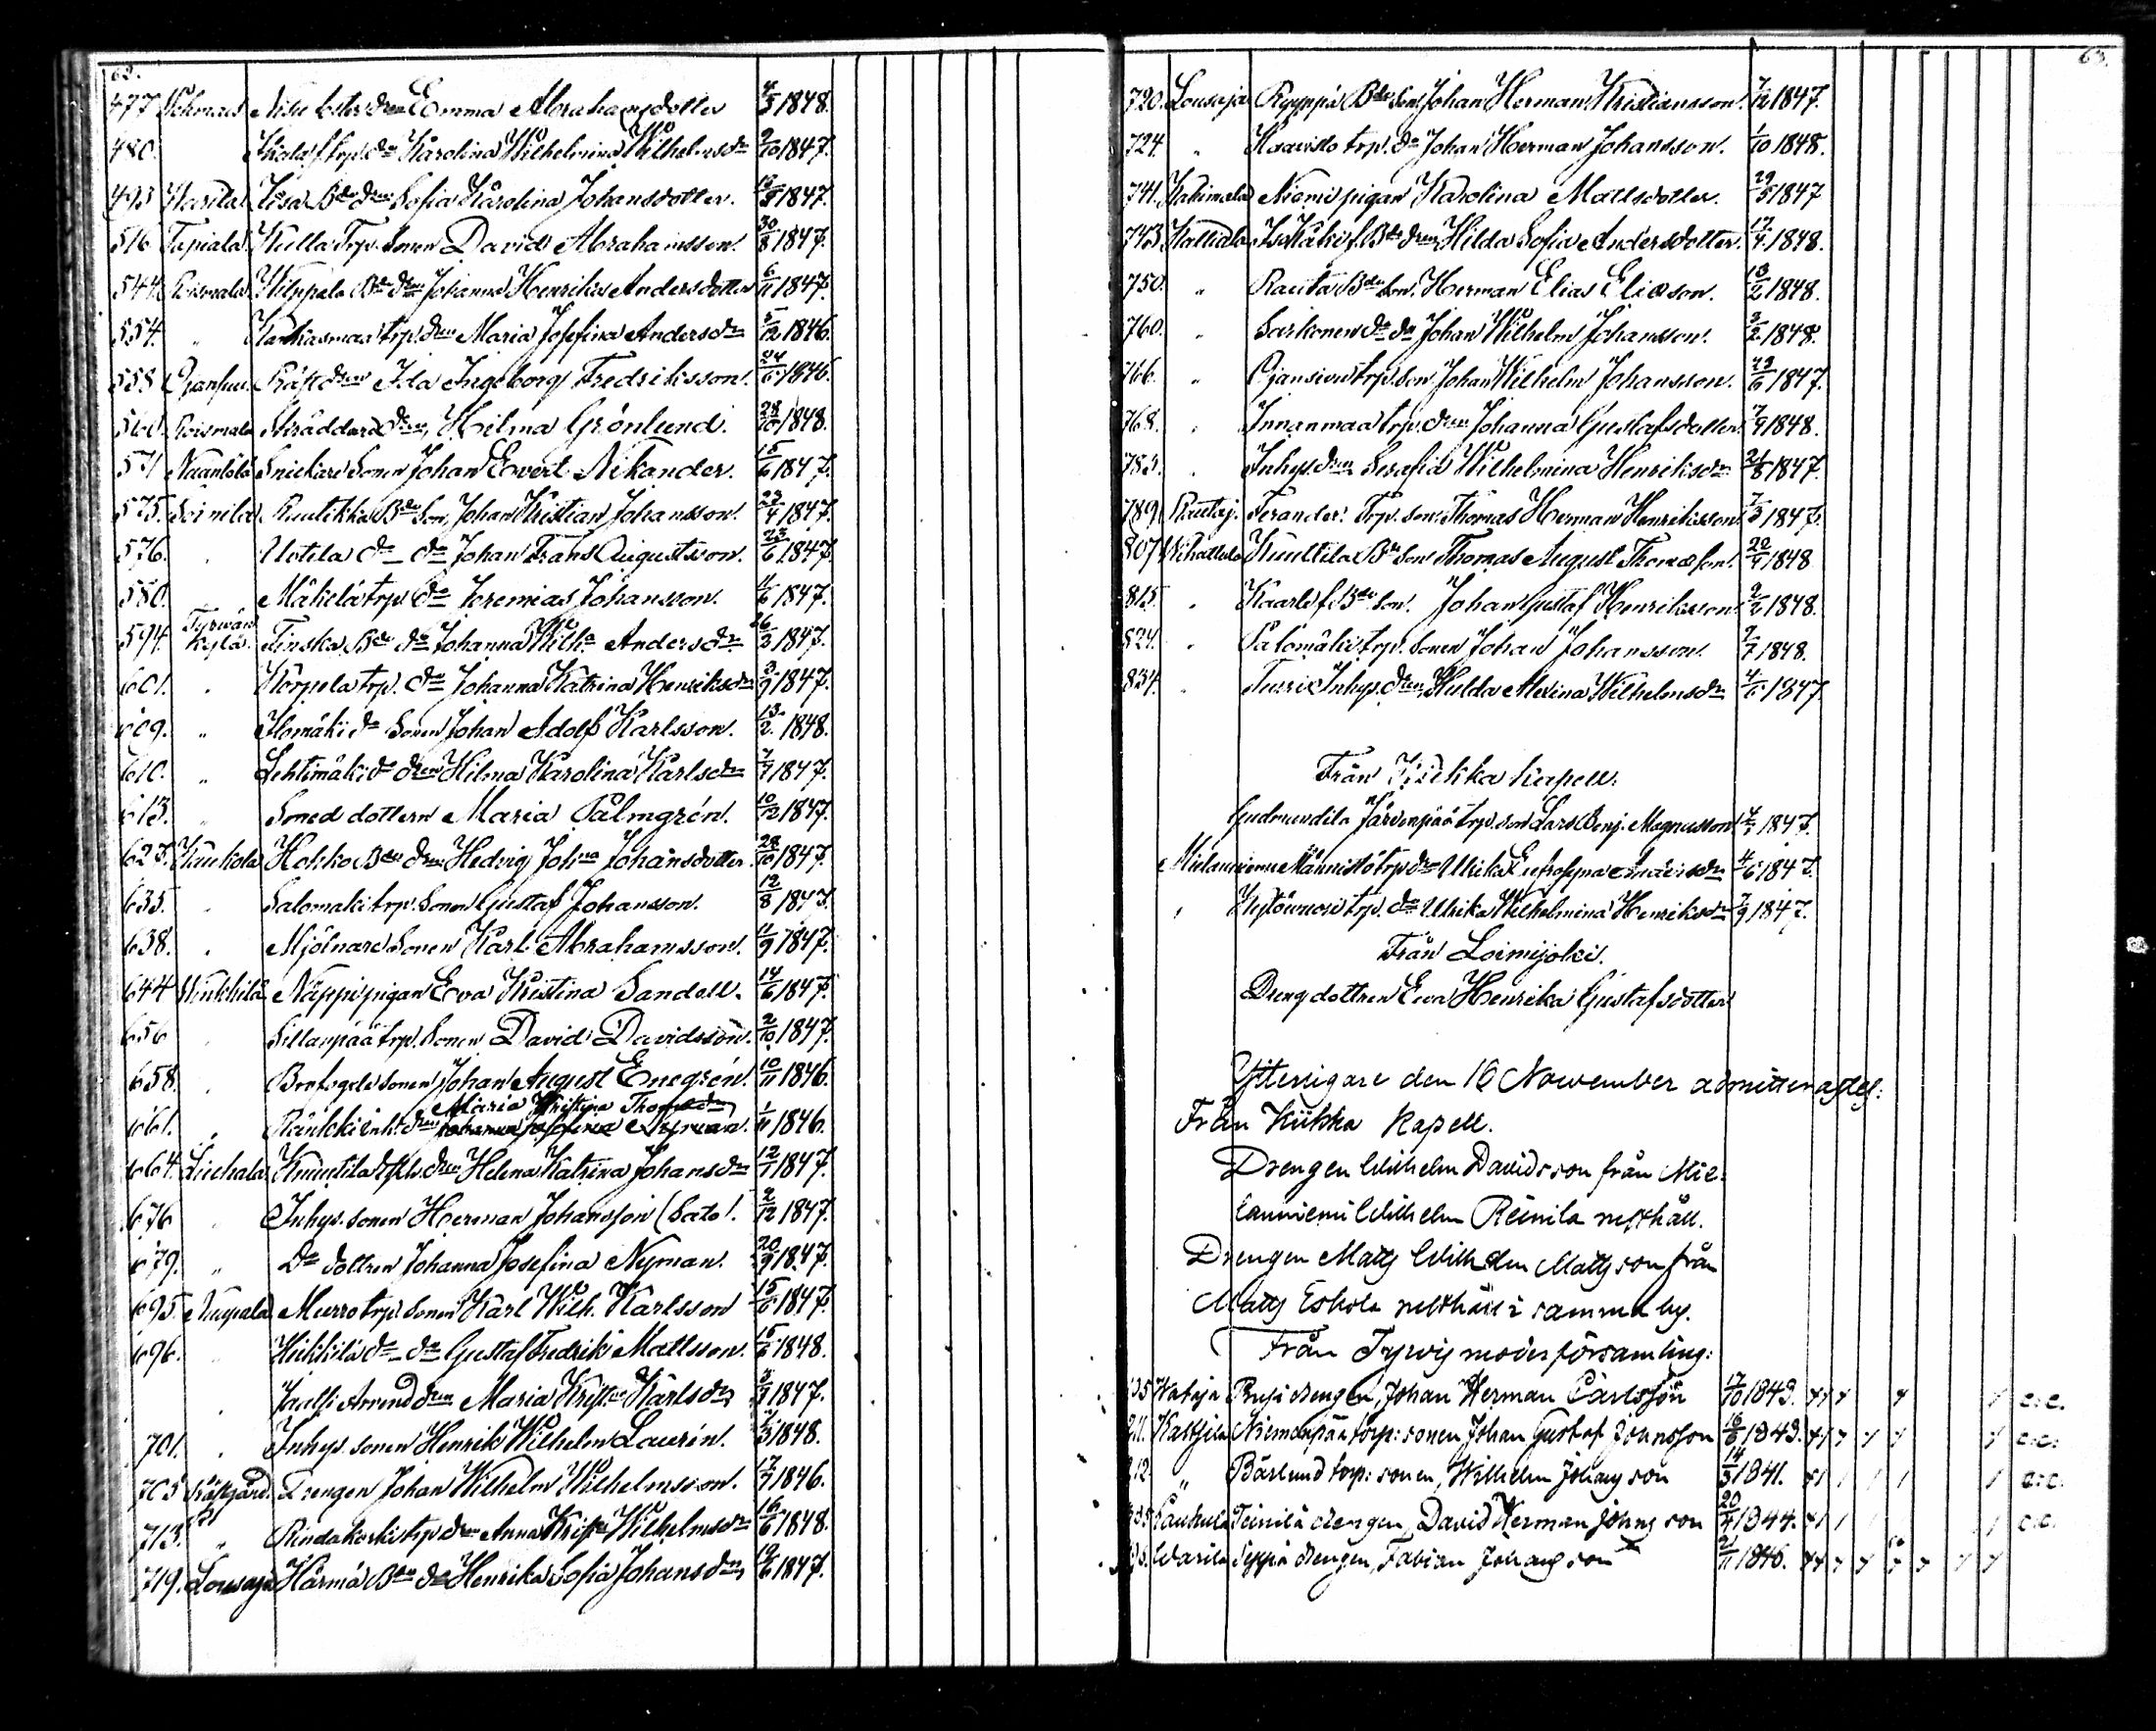 62.
477 Nohmaa Nisu Emma Abrahamsdotter 4/3 1848.
480. trp. dn Karolina Wilhelmina Wilhelmsdr 2/10 1847.
493 Warila Iisa Bde dren Sofia Karolina Johansdotter. 1847.
516 Tapiala Kulla Trp. Sonen David Abrahamsson. 30/8 1847.
544 Roismala Wilppala Bde dren Johanna Henrika Andersdotter 6/11 1847.
554. " Kankasmaa trp. dren Maria Josefina Andersdr 5/12 1846.
558 dren Ida Ingeborg Fredriksson. 24/6 1846.
560 Roismala Skräddare dren Hilma Grönlund. 28/10 1848.
571 Naantila Snickare Sonen Johan Evert Nikander. 15/6 1847.
575. Soinila Rautikka Bde Son Johan Kristian Johansson. 23/4 1847.
576. . Uotila do do Johan Frans Augustsson. 23/6 1847.
580. Mäkelä trp. do Jeremias Johansson. 11/6 1847.
594. Tyrwään kylä. Tinska Bde do Johanna Wilha Andersdr 26/3 1847.
601. . Korpela trp. do Johanna Katrina Henriksdr 3/9 1847.
609. " Ilomäki do Sonen Johan Adolf Karlsson. 13/2 1848.
610. " Lehtimäki do dren Hilma Karolina Karlsdr 7/7 1847.
613. " Smed dottern Maria Palmgrén. 10/12 1847.
627. Kaukola Hohko Bde dren Hedvig Johna Johansdotter. 28/10 1847.
635. . Salomaki trp. Sonen Gustaf Johansson. 12/8 1847.
638. . Mjölnare Sonen Karl Abrahamsson. 11/9 1847.
644 Winkkilä Näppi pigan Eva Kristina Sandell. 14/6 1847.
656 . Sillanpää trp. Sonen David Davidsson. 2/10 1847.
658. . Brofogde sonen Johan August Enegrén. 10/11 1846.
Maria Kristina Thomasdr
661. . Räntcki inh. dren Johanna Josefina Nyman. 1/11 1846.
664. Liuhala Knuutila dren Helena Katrina Johansdr 12/7 1847.
676 . Inhys. sonen Herman Johansson (Salo). 2/12 1847.
679. " Do dottren Johanna Josefina Nyman. 20/9 1847.
695. Nuupala Murro trp. sonen Karl Wilh. Karlsson 15/6 1847.
696. " Hiukkilä do do Gustaf Fredrik Mattsson. 15/6 1848.
. Jaalli Arrend dren Maria Kristna Karlsdr 3/9 1847.
701. . Inhys. sonen Henrik Wilhelm Laurén. 2/3 1848.
705 Prästgård. Drengen Johan Wilhelm Wilhelmsson. 17/7 1846.
713. " Rindakoski trp dren Anna Kristna Wilhelmsdr 16/6 1848.
719. Lousaja Härmä Bde do Henrika Sofia Johansdr 19/6 1847.
63.
720. Lousaja Ryyppä Bde Son Johan Herman Kristiansson. 7/12 1847.
724. " Haavisto trp. do Johan Herman Johansson. 1/10 1848.
741. Kakimala Niemi pigan Karolina Mattsdotter. 29/5 1847
743 Kalliala Isokäki f. Bde dren Hilda Sofia Andersdotter. 17/4 1848.
750. " Rauta Bde Son. Herman Elias Eliasson. 13/2 1848.
760. " Sarkonen do do Johan Wilhelm Johansson. 3/2 1848.
766. " Ojansivu trp. Son Johan Wilhelm Johansson. 23/6 1847.
768. " Innanmaa trp. dren Johanna Gustafsdotter. 7/9 1848.
783. " Inhys dren Serafia Wilhelmina Henriksdr 21/8 1847.
789 Rautaj. Ferander. Trp. son. Thomas Herman Henriksson. 7/3 1847.
807 Wihattula Knuttila Bde Son Thomas August Thomasson. 20/4 1848
815. " Kaarle f. Bde Son. Johan Gustaf Henriksson 2/2 1848.
824. " Salomäki trp. sonen Johan Johansson. 7/7 1848.
834. " Turri Inhys dren Hulda Alexina Wilhelmsdr 4/6 1847.
Från Kiikka kapell.
Gudmundila Järvenpää trp. son Lars Benj. Magnusson 1847.
Mielauniemi Männistö trp dren Ulrika Eufrosyna Andersdr 4/6 1847.
" trp. do Ulrika Wilhelmina Henriksdr 7/9 1847.
Från Loimijoki.
Dreng dottren Eva Henrika Gustafsdotter
Ytterligare den 16 November admitterades:
Från Kiikka Kapell.
Drengen Wilhelm Davidsson från Mie-
launiemi Wilhelm Reinila rusthåll.
Drengen Matts Wilhelm Mattsson från
Matts Eskola rusthåll i samma by.
Från Tyrvis moderförsamling:
135 Kataja Rusi drengen, Johan Herman Carlsson 17/10 1843. c: c.
211. Kaltsila Niemenpää torp: sonen Johan Gustaf Johnsson 16/6 1843. c: c:
212. " Bärlund torp: sonen, Wilhelm Johansson 14/3 1841. c: c.
335 Kaukula Teinilä drengen, David Herman Johansson 20/4 1844. c: c.
493. Warila Seppä drengen, Fabian Johansson 21/11 1846.